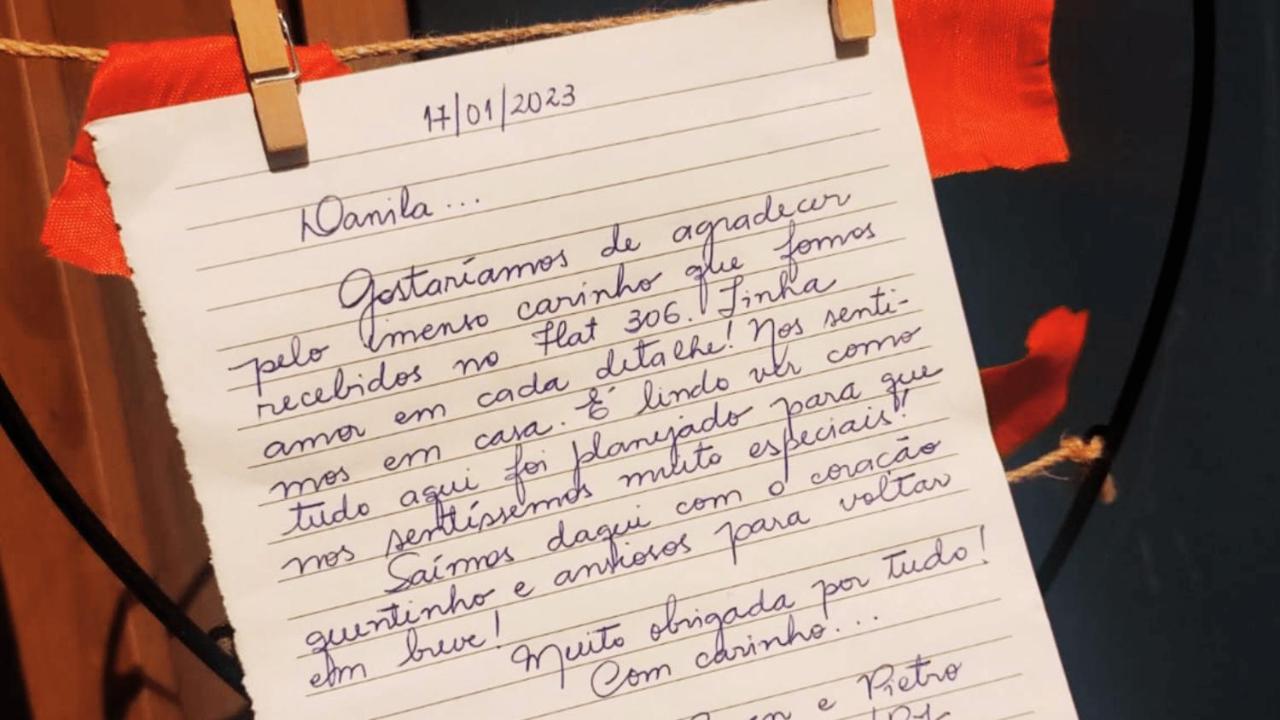 17/01/2023
Danila...
Gostaríamos de agradecer
pelo imenso carinho que fomos
recebidos no Flat 306. Tinha
amor em cada detalhe! Nos senti-
mos em casa. É lindo ver como
tudo aqui foi planejado para que
nos sentíssemos muito especiais!
Saímos daqui com o coração
quentinho e ansiosos para voltar
em breve!
Muito obrigada por tudo!
Com carinho...
e Pietro